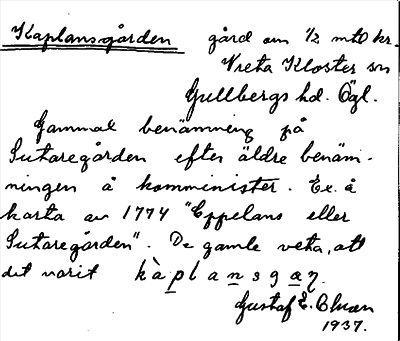 Kaplansgården gård om 1/2 mtl kr.
Vreta Kloster sn
Gullbergs hd. Ögl.
Gammal benämning på
Sutaregården efter äldre benäm-
ningen å komminister. Ex. å
karta av 1774 "Cappelans eller
Sutaregården". De gamle veta, att
det varit kàplansgaṇ.
Gustaf E.
1937.